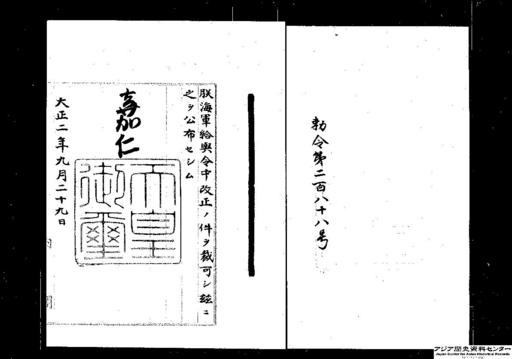 勅令第二百八十八号
朕海軍給與令中改正ノ件ヲ裁可シ茲ニ
之ヲ公布セシム
嘉仁
天皇
御璽
大正二年九月二十九日
アジア歴史資料センター
Japan Center for Asian Historical Records